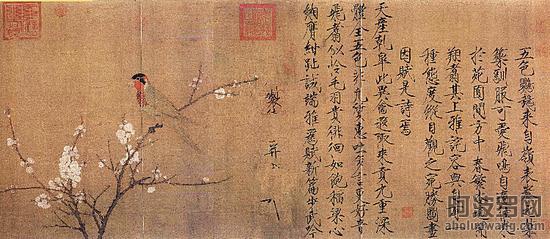 五色鸚鵡來自嶺表養之禁
籞馴服可愛飛鳴自適往來
於苑囿間方中春繁杏遍開
翔翥其上雅詫容與自有一
種態度縱目觀之宛勝圖畫
因賦是詩焉
天產乾皋此異禽遐陬來貢九重深
體全五色非凡質惠吐多言更好音
飛翥似憐毛羽貴徘徊如飽稻粱心
緗膺紺趾誠端雅為賦新篇步武吟
製
并
阿波罗网
aboluowang.com